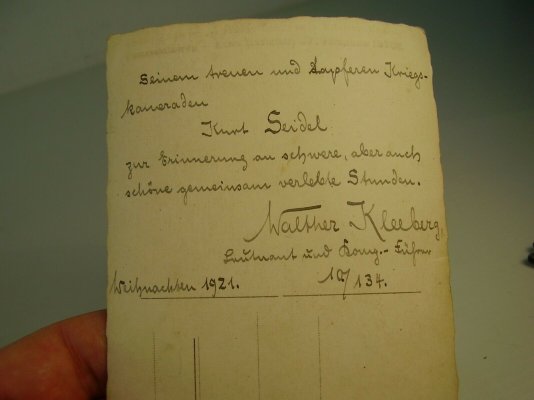 Seinem treuen und tapferen Kriegs-
kameraden
Kurt Seidel
zur Erinnerung an schwere, aber auch
schöne gemeinsam verlebte Stunden.
Walther Kleeberg,
Leutnant und Komp.-Führer
Weihnachten 1921. 10/134.